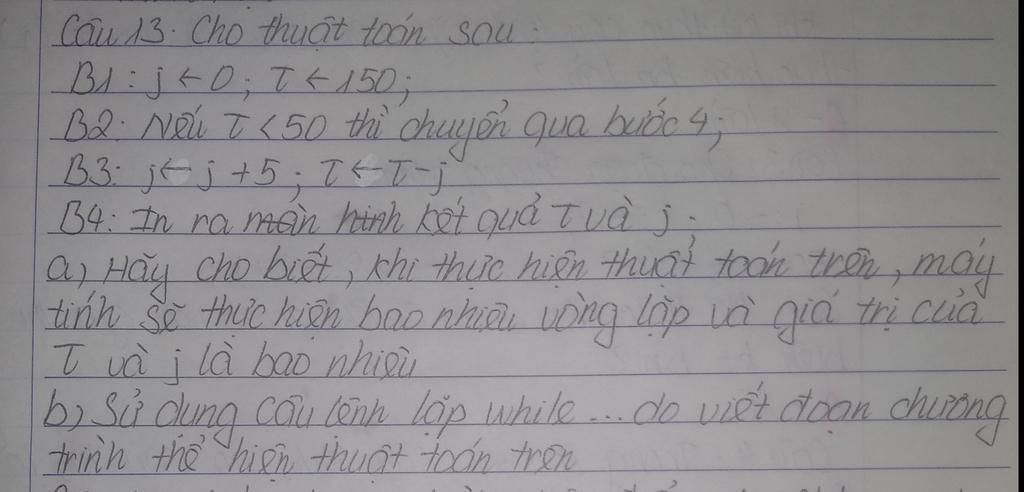 Câu 13. Cho thuật toán sau:
B1: j ← 0; T ← 150;
B2: Nếu T < 50 thì chuyển qua bước 4;
B3: j ← j + 5; T ← T - j
B4: In ra màn hình kết quả T và j.
a) Hãy cho biết, khi thực hiện thuật toán trên, máy
tính sẽ thực hiện bao nhiêu vòng lặp và giá trị của
T và j là bao nhiêu
b) Sử dụng câu lệnh lặp while ... do viết đoạn chương
trình thể hiện thuật toán trên